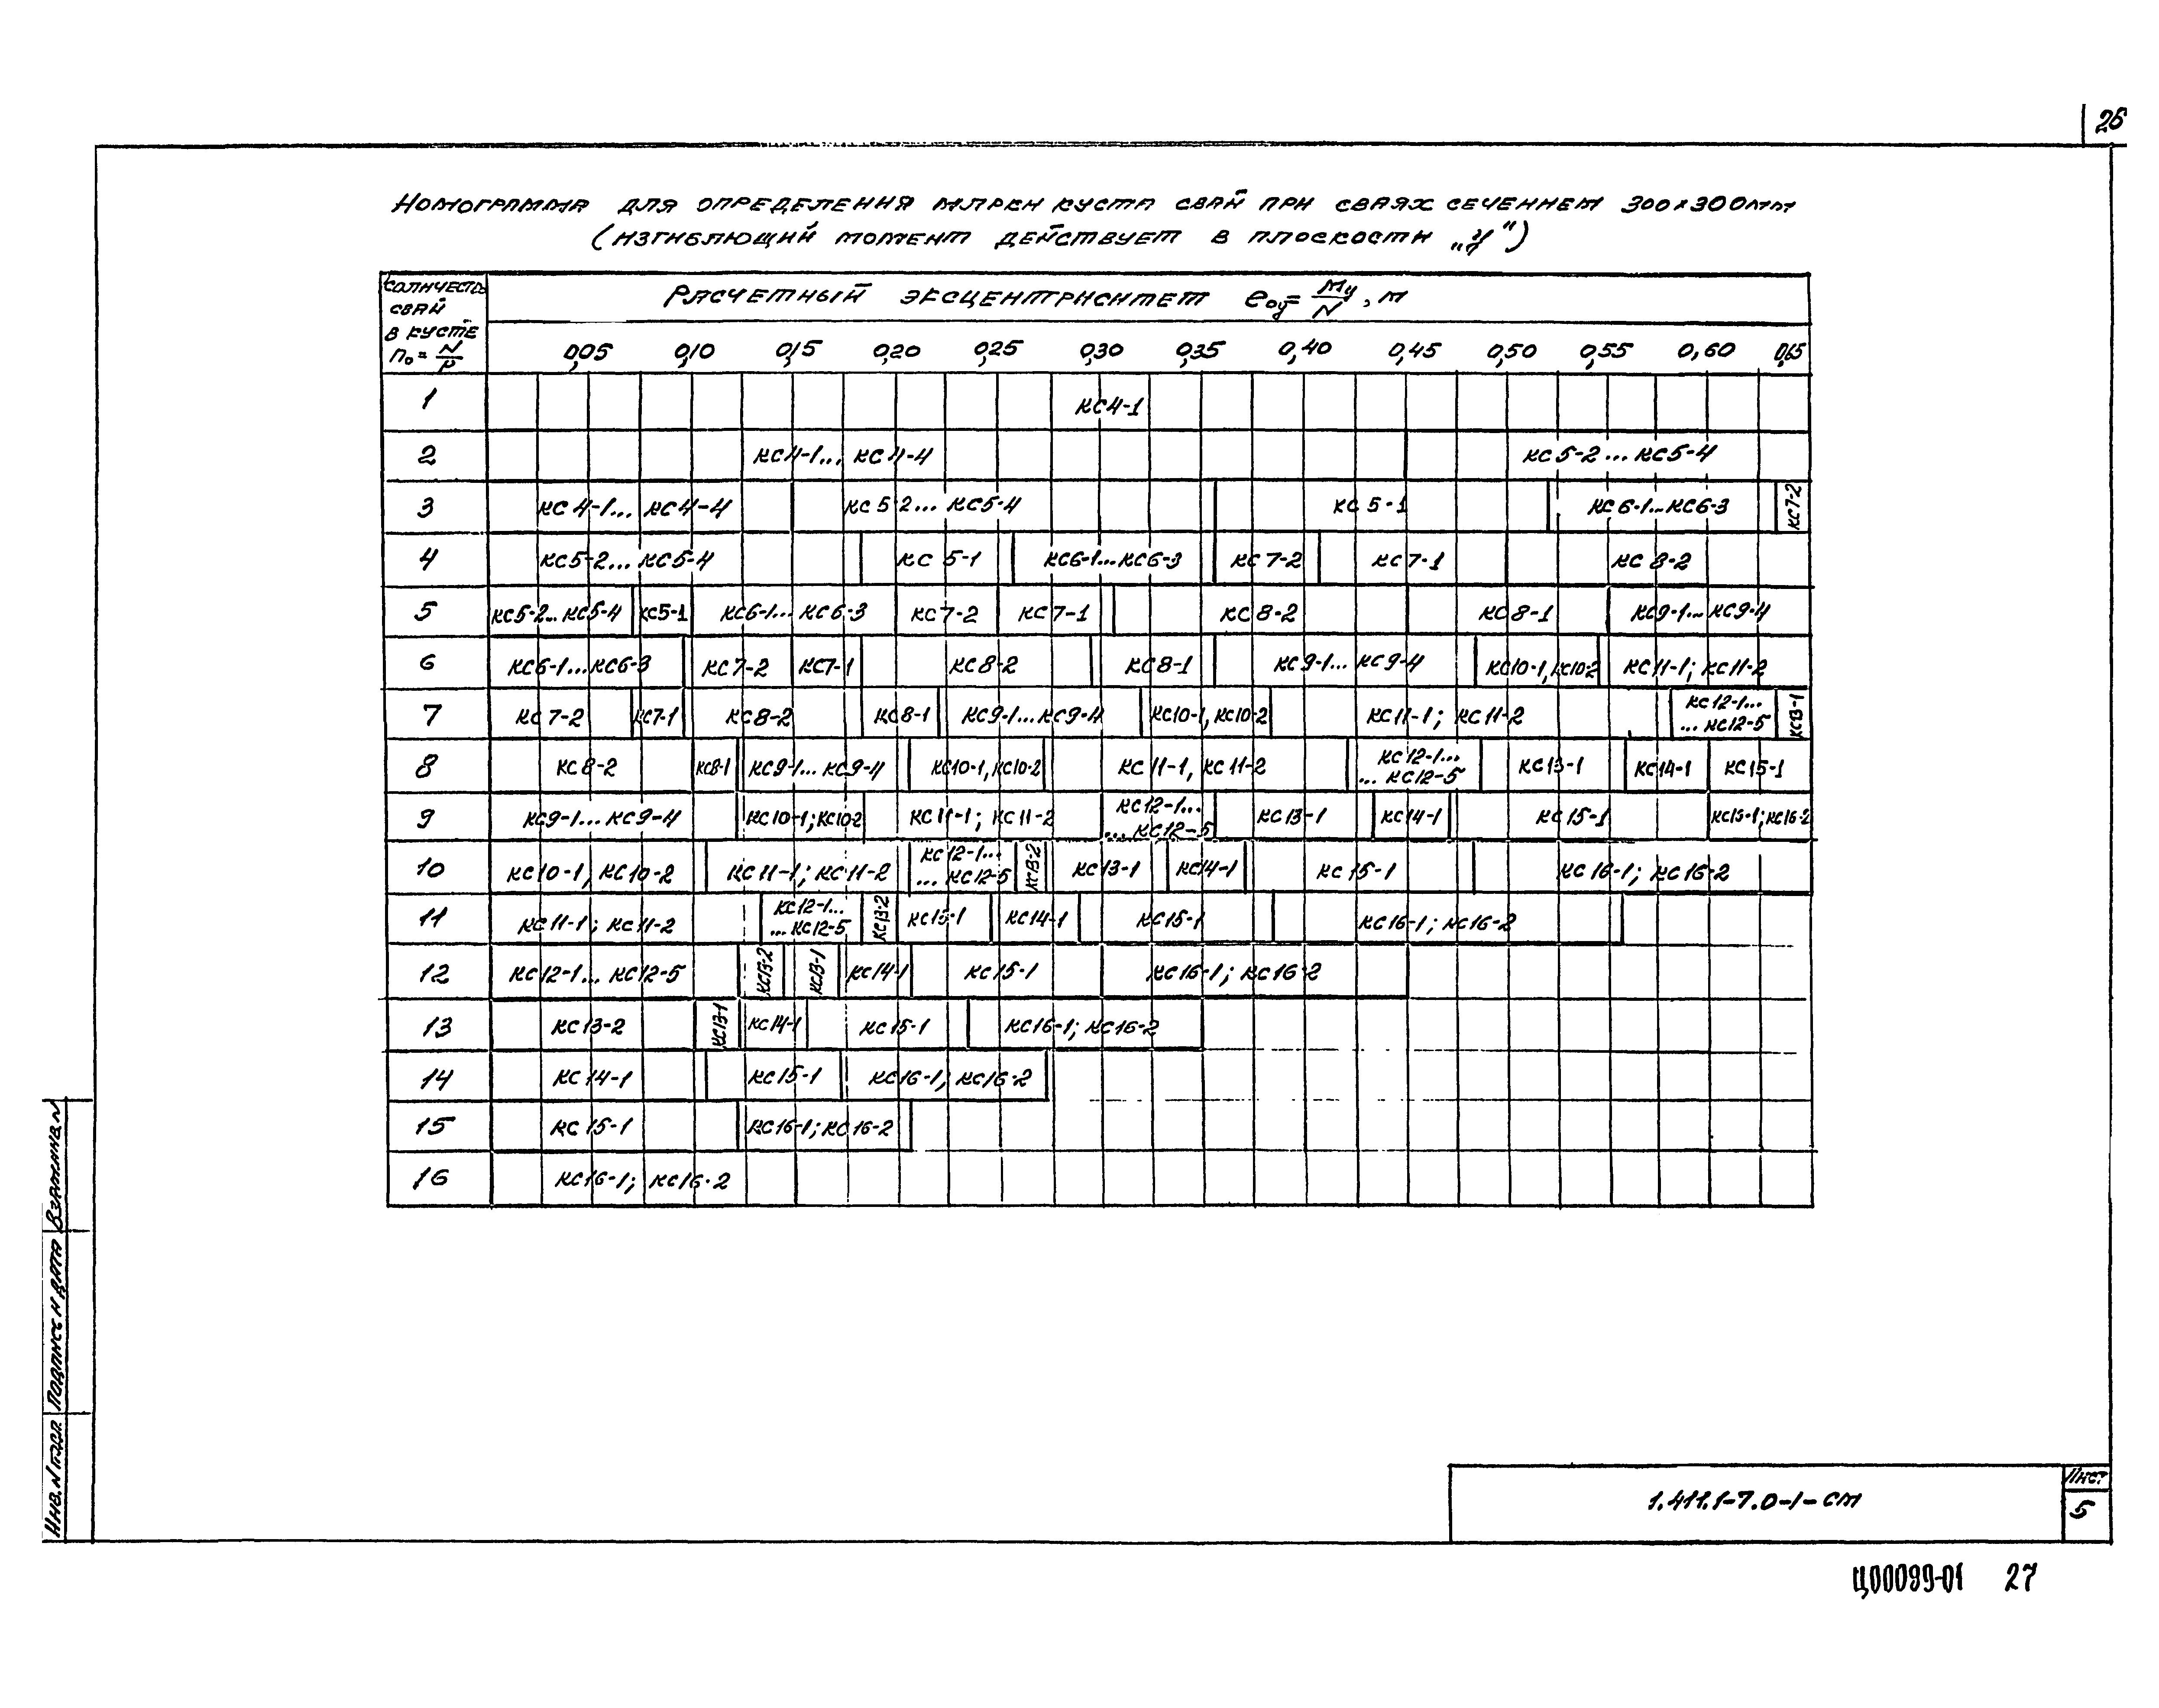 26
Номограмма для определения марки куста свай при сваях сечением 300×300мм
(изгибающий момент действует в плоскости „У")
Количество свай в кусте n₀ = N/P
Расчетный эксцентриситет e₀у = Mу/N, м
0,05 0,10 0,15 0,20 0,25 0,30 0,35 0,40 0,45 0,50 0,55 0,60 0,65
1 КС4-1
2 КС4-1... КС4-4 КС5-2...КС5-4
3 КС4-1... КС4-4 КС5-2... КС5-4 КС5-1 КС6-1...КС6-3 КС7-2
4 КС5-2... КС5-4 КС5-1 КС6-1...КС6-3 КС7-2 КС7-1 КС8-2
5 КС5-2... КС5-4 КС5-1 КС6-1... КС6-3 КС7-2 КС7-1 КС8-2 КС8-1 КС9-1... КС9-4
6 КС6-1...КС6-3 КС7-2 КС7-1 КС8-2 КС8-1 КС9-1... КС9-4 КС10-1, КС10-2 КС11-1; КС11-2
7 КС7-2 КС7-1 КС8-2 КС8-1 КС9-1...КС9-4 КС10-1, КС10-2 КС11-1; КС11-2 КС12-1... ...КС12-5 КС13-1
8 КС8-2 КС8-1 КС9-1... КС9-4 КС10-1, КС10-2 КС11-1, КС11-2 КС12-1... ...КС12-5 КС13-1 КС14-1 КС15-1
9 КС9-1... КС9-4 КС10-1; КС10-2 КС11-1; КС11-2 КС12-1... ...КС12-5 КС13-1 КС14-1 КС15-1 КС15-1; КС16-2
10 КС10-1, КС10-2 КС11-1; КС11-2 КС12-1... ...КС12-5 КС13-2 КС13-1 КС14-1 КС15-1 КС16-1; КС16-2
11 КС11-1; КС11-2 КС12-1... ...КС12-5 КС13-2 КС15-1 КС14-1 КС15-1 КС16-1; КС16-2
12 КС12-1... КС12-5 КС13-2 КС13-1 КС14-1 КС15-1 КС16-1; КС16-2
13 КС13-2 КС13-1 КС14-1 КС15-1 КС16-1; КС16-2
14 КС14-1 КС15-1 КС16-1, КС16-2
15 КС15-1 КС16-1; КС16-2
16 КС16-1; КС16-2
Инв. N подл. Подпись и дата Взам.инв.N
1.411.1-7.0-1-СМ
Лист
5
Ц00099-01 27